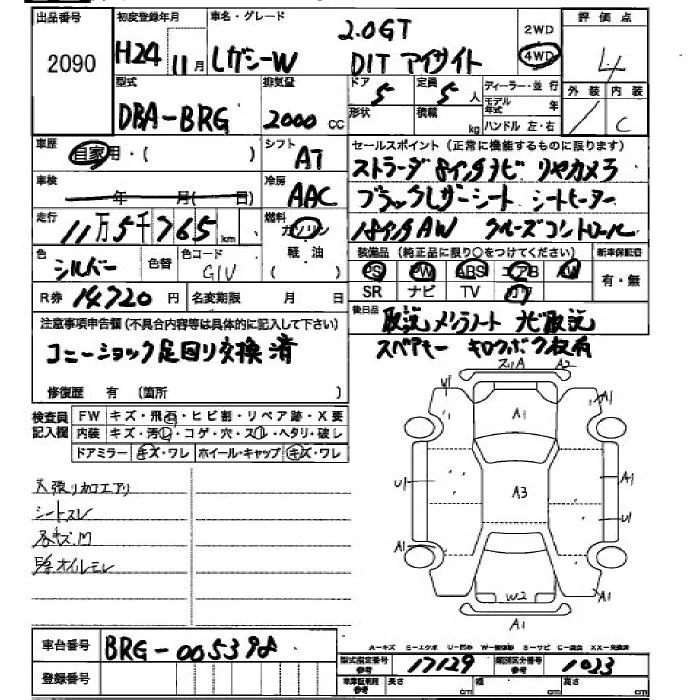 出品番号 初度登録年月 車名・グレード 2WD 評価点
2090 H24 11月 レガシーW 2.0GT DIT アイサイト 4WD 4
型式 排気量 ドア 5 定員 5人 ディーラー・並行 外装 内装
DBA-BRG 2000cc 形状 積載 kg モデル年式 年 C
ハンドル 左・右
車歴 自家用・( ) シフト AT セールスポイント(正常に機能するものに限ります)
ストラーダ 8インチナビ リヤカメラ
車検 年 月( 日) 冷房 AAC ブラックレザーシート シートヒーター
走行 11万5千765km 燃料 ガソリン 軽油 18インチAW クルーズコントロール
色 シルバー 色替 色コード G1U 装備品(純正品に限り○をつけてください) 新車保証書
PS PW ABS エアB AW 有・無
SR ナビ TV カワ
R券 14720円 名変期限 月 日 後日品
取説 メンテノート ナビ取説
注意事項申告欄(不具合内容等は具体的に記入して下さい) スペアキー
コニーショック足回り交換済
修復歴 有 (箇所 )
検査員記入欄 FW キズ・飛石・ヒビ割・リペア跡・X要
内装 キズ・汚レ・コゲ・穴・スレ・ヘタリ・破レ
ドアミラー キズ・ワレ ホイール・キャップ キズ・ワレ
シートスレ
A2
U1 A1 A1
U1 A3 A1
U1
A1 W2 A1
A1
A-キズ E-エクボ U-凹み W-補修跡 S-サビ C-腐食 XX-交換済
車台番号 BRG-005398
登録番号
型式指定番号 参考 17129 類別区分番号 参考 1023
車庫証明用 参考 長さ cm 幅 cm 高さ cm